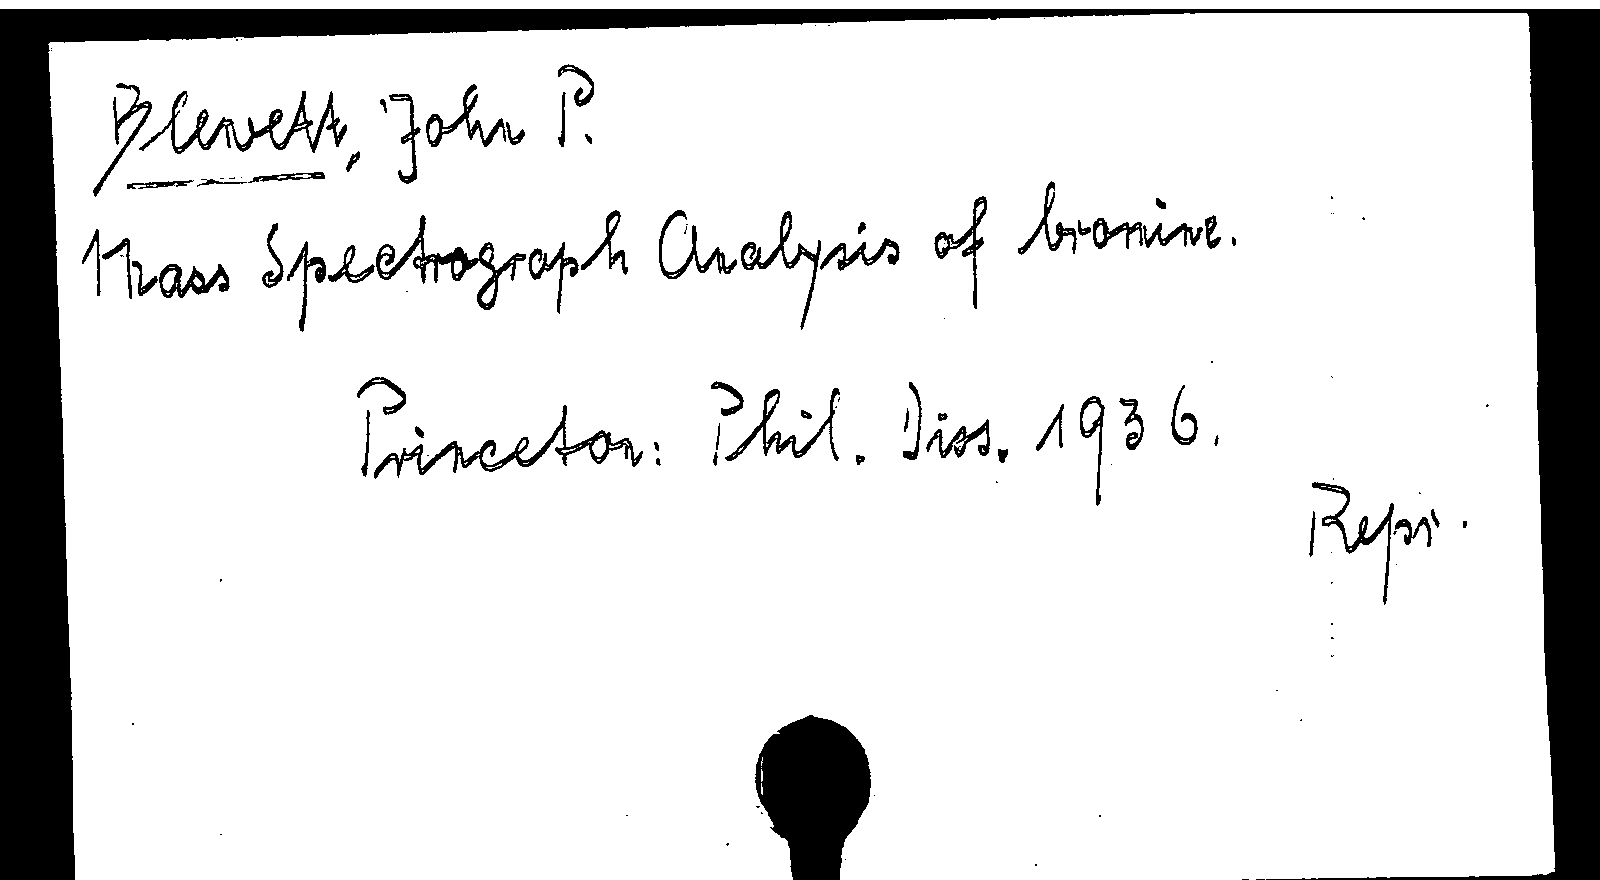 Blewett, John P.
Mass Spectrograph Analysis of bromine.
Princeton: Phil. Diss. 1936.
Repr.